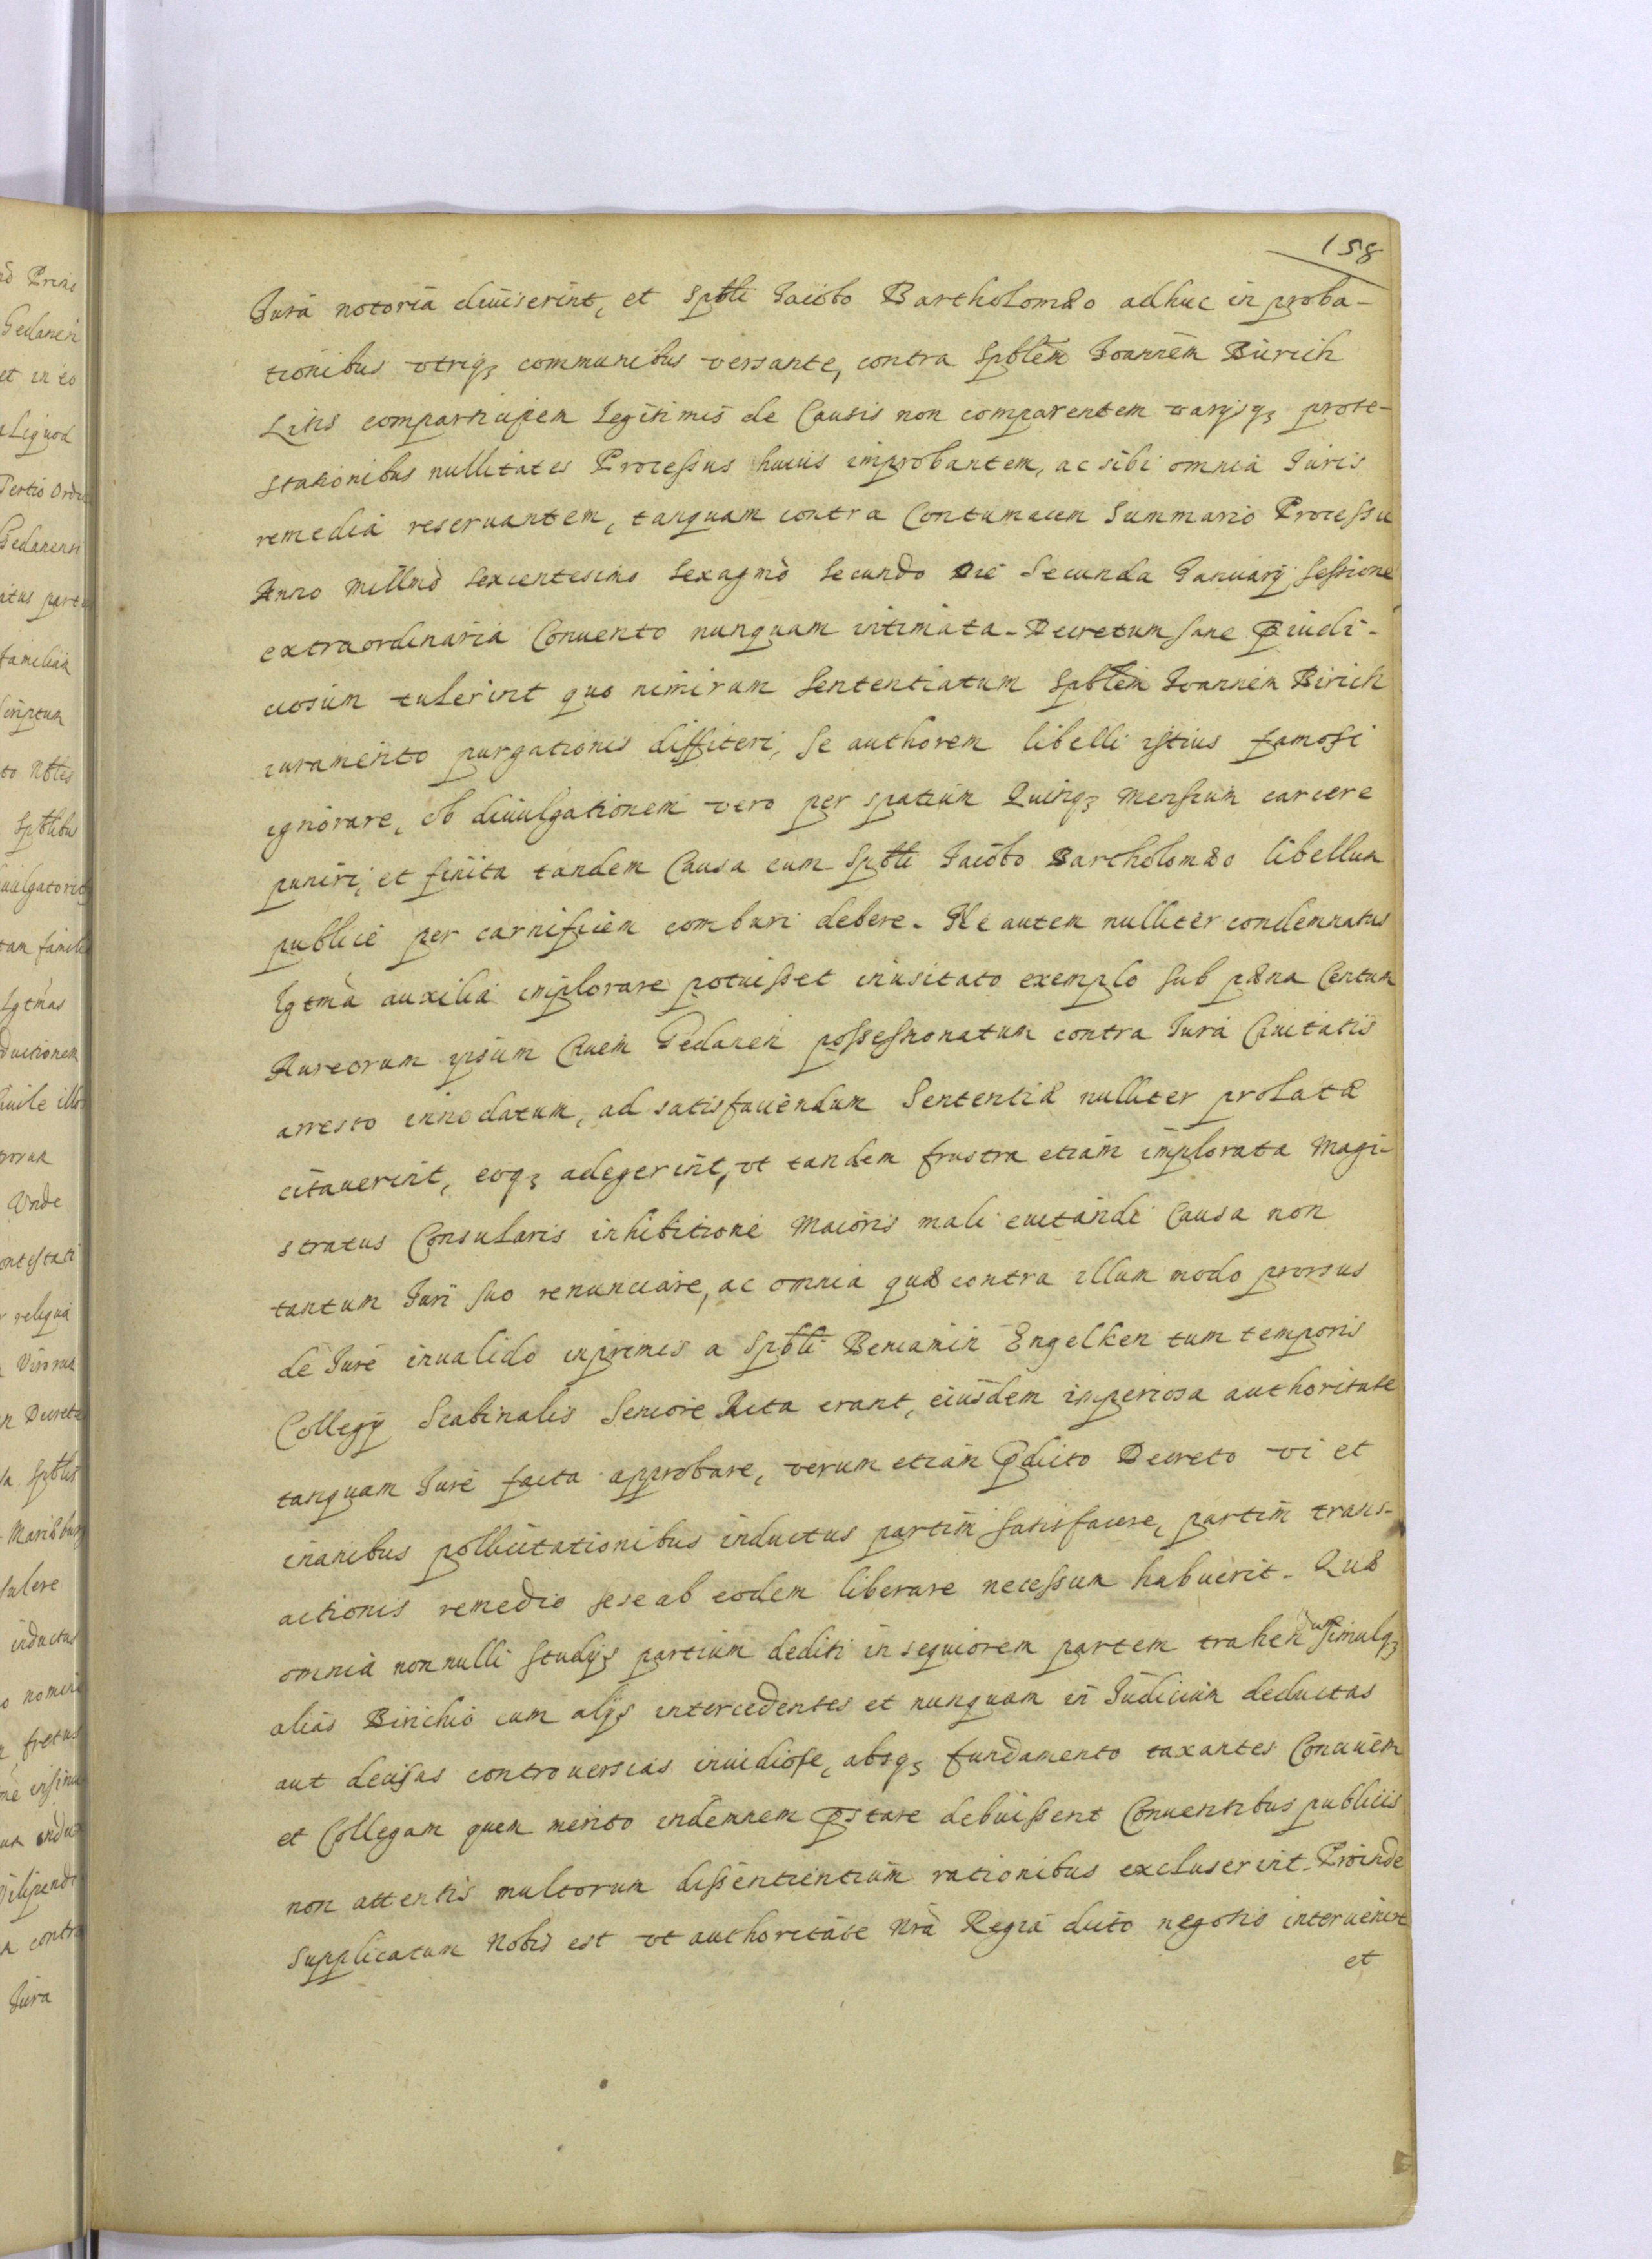 158
Jura notoria diuiserint, et Spbli Jacobo Bartholomæo adhuc in proba-
tionibus vtriq3 communibus versante, contra Spblem Joannem Birich
Litis comparticipem legitimis de Causis non comparentem varijsq3 prote-
stationibus nullitates Processus huius improbantem, ac sibi omnia Juris
remedia reseruantem, tanquam contra Contumacem Summario Processu
Anno Millmo sexcentesimo sexagmo secundo Die Secunda January sessione
extraordinaria Conuento nunquam intimata. Decretum sane Piudi-
ciosum tulerint quo nimirum sententiatum Spblem Joannem Birich
iuramento purgationis diffiteri, se authorem libelli istius famosi
ignorare, ob diuulgationem vero per spatium Quinq3 mensium carcere
puniri, et finita tandem Causa cum Spbli Jacobo Bartholomæo libellum
publice per carnificem comburi debere. Ne autem nulliter condemnatus
lgtma auxilia implorare potuisset inusitato exemplo sub pæna Centum
Aureorum ipsum Ciuem Gedanen possessionatum contra Jura Ciuitatis
arresto innodatum, ad satisfaciendum Sententiæ nulliter prolatæ
citauerint, eoq3 adegerint, vt tandem frustra etiam implorata Magi-
stratus Consularis inhibitione maioris mali euitandi Causa non
tantum Juri suo renunciare, ac omnia quæ contra illum modo prorsus
de Jure inualido inprimis a Spbli Beniamin Engelken tum temporis
Collegij Scabinalis Seniore Acta erant, eiusdem imperiosa authoritate
tanquam Jure facta approbare, verum etiam Pdicto Decreto vi et
inanibus pollicitationibus inductus partim satisfacere, partim trans-
actionis remedio sese ab eodem liberare necessum habuerit. Quæ
omnia nonnulli studijs partium dediti in sequiorem partem trahendum simulq3
alias Birichio cum alijs intercedentes et nunquam in Judicium deductas
aut decisas controuersias inuidiose, absq3 fundamento taxantes Conciuem
et Collegam quem merito indemnem Pstare debuissent Conuentibus publicis
non attentis multorum dissentientium rationibus excluserint. Proinde
supplicatum Nobis est vt authoritate Nra Regia dicto negotio interuenire
et